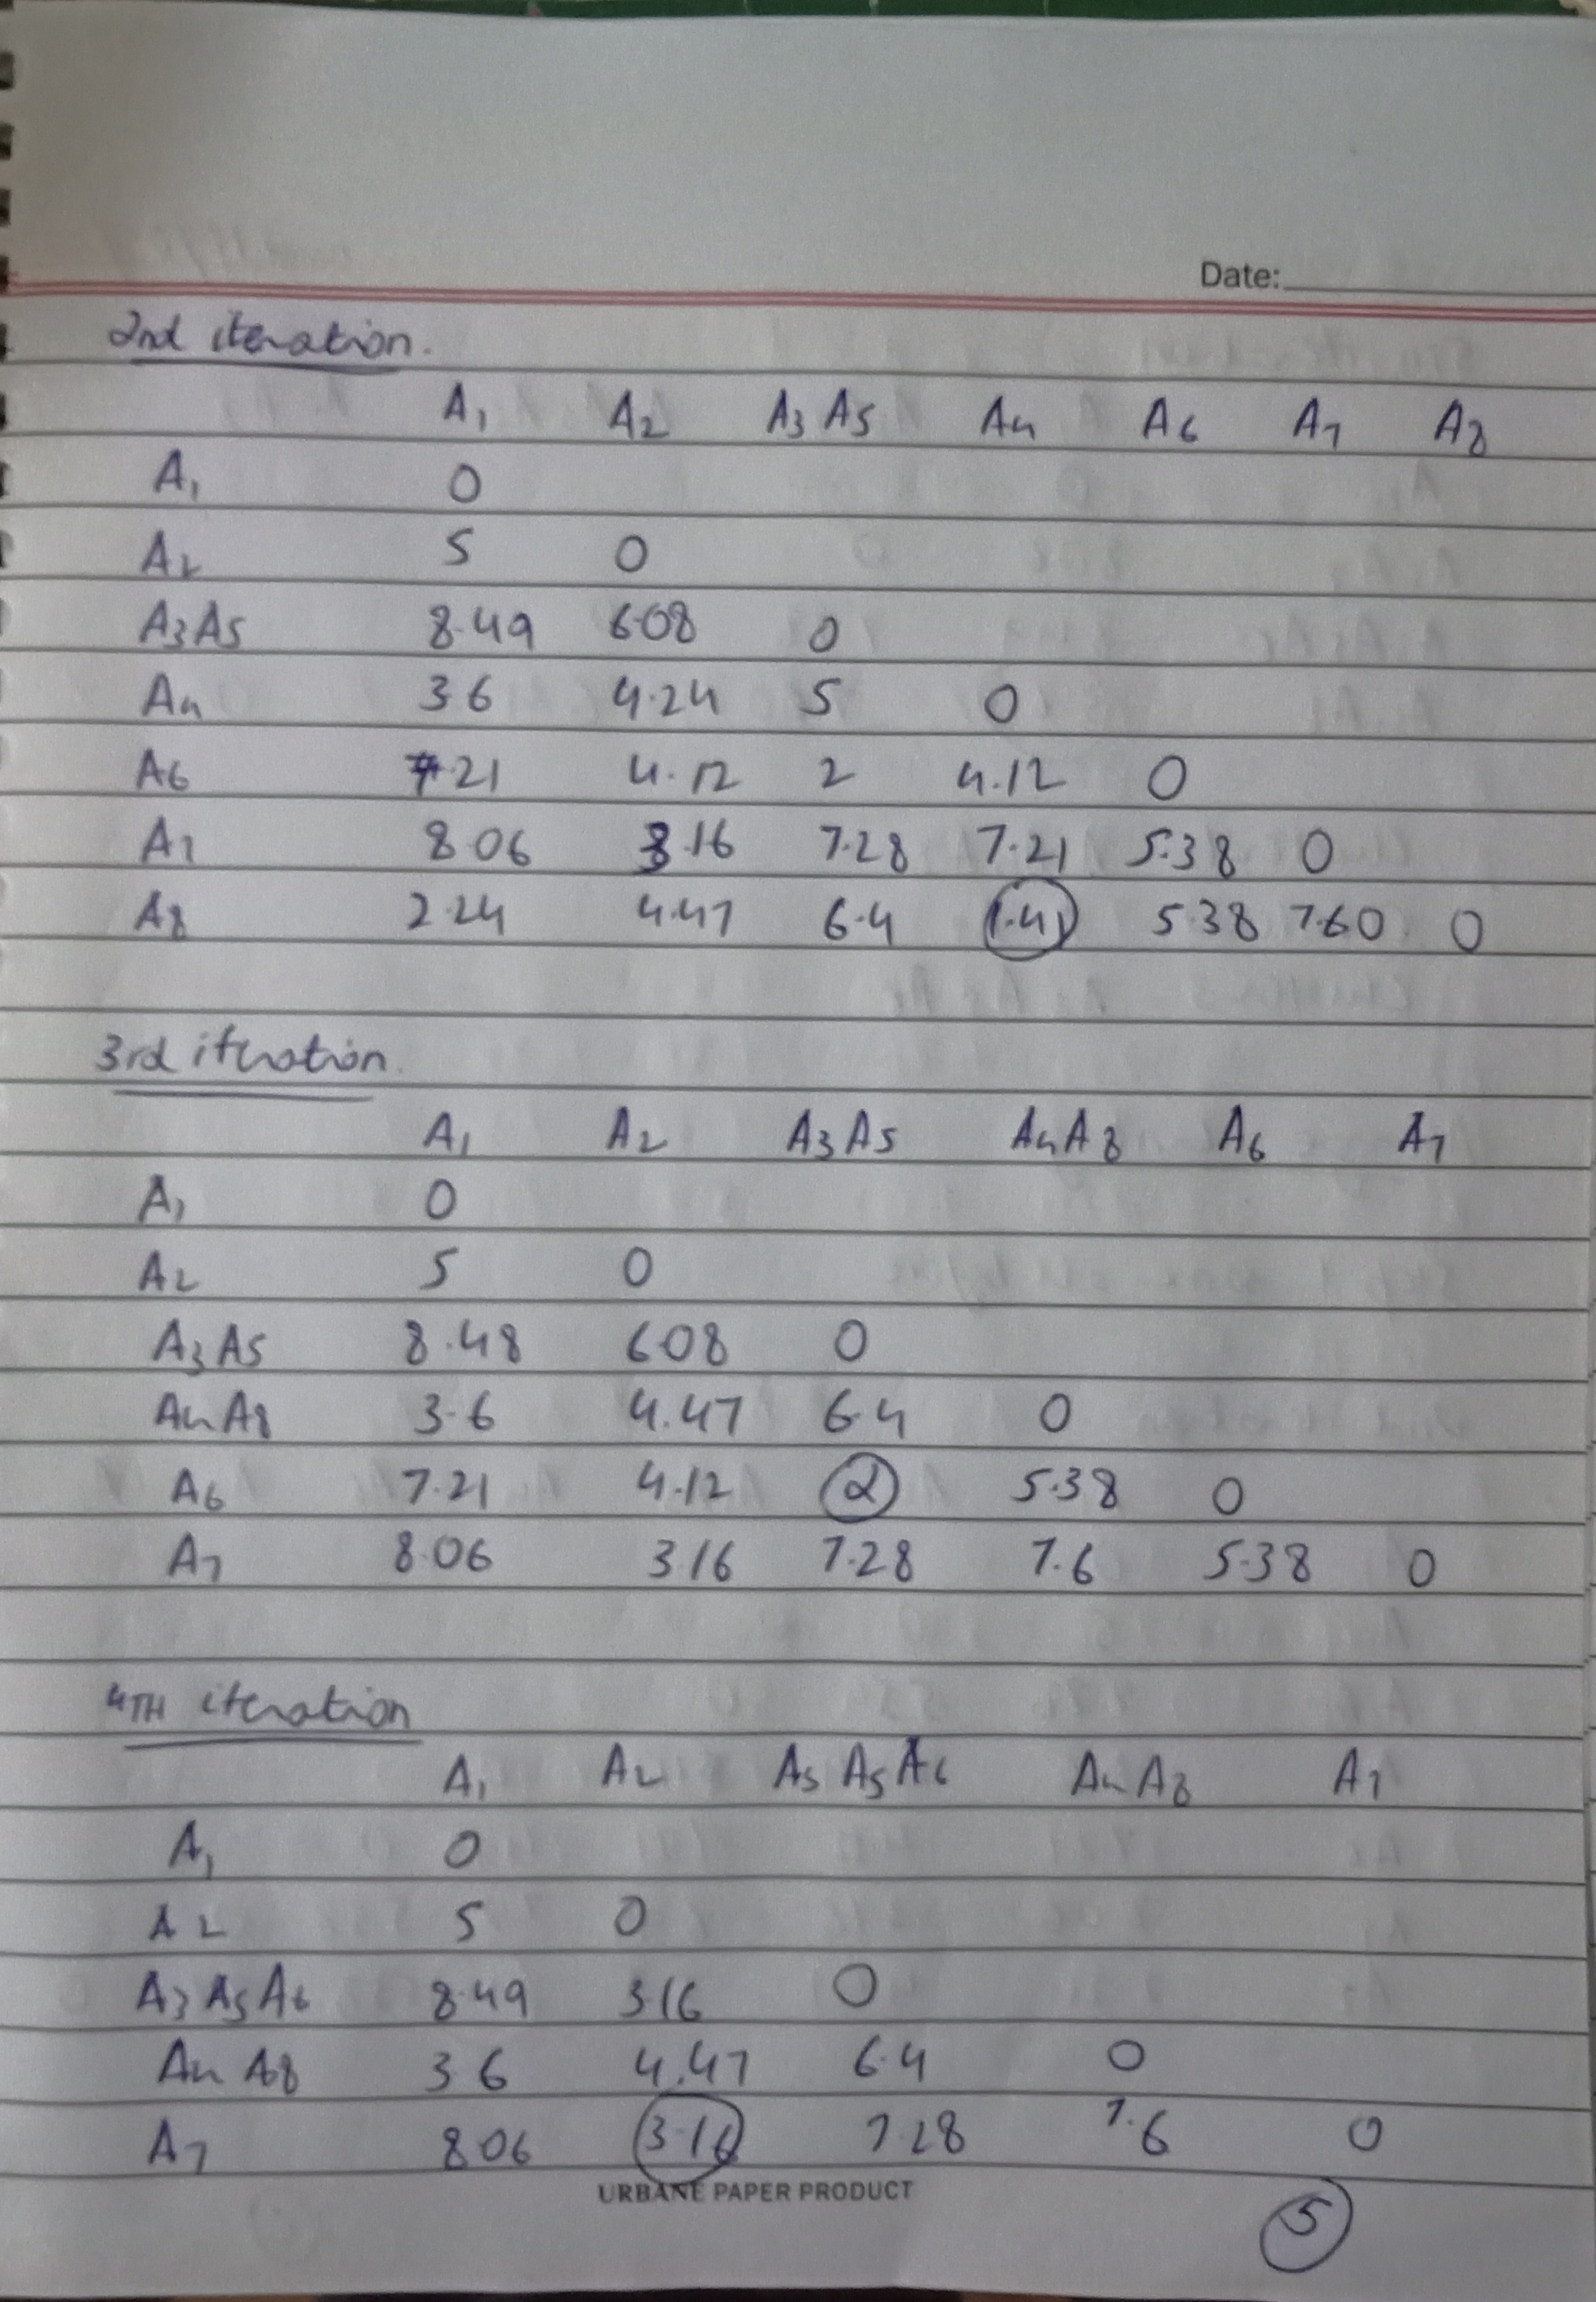 Date:
2nd iteration.
A1 A2 A3 A5 A4 A6 A7 A8
A1 0
A2 5 0
A3A5 8.49 6.08 0
A4 3.6 4.24 5 0
A6 7.21 4.12 2 4.12 0
A7 8.06 3.16 7.28 7.21 5.38 0
A8 2.24 4.47 6.4 1.41 5.38 7.60 0
3rd iteration.
A1 A2 A3 A5 A4 A8 A6 A7
A1 0
A2 5 0
A3 A5 8.48 6.08 0
A4 A8 3.6 4.47 6.4 0
A6 7.21 4.12 2 5.38 0
A7 8.06 3.16 7.28 7.6 5.38 0
4TH iteration
A1 A2 A3 A5 A6 A4 A8 A7
A1 0
A2 5 0
A3 A5 A6 8.49 3.16 0
A4 A8 3.6 4.47 6.4 0
A7 8.06 3.16 7.28 7.6 0
URBANE PAPER PRODUCT
5